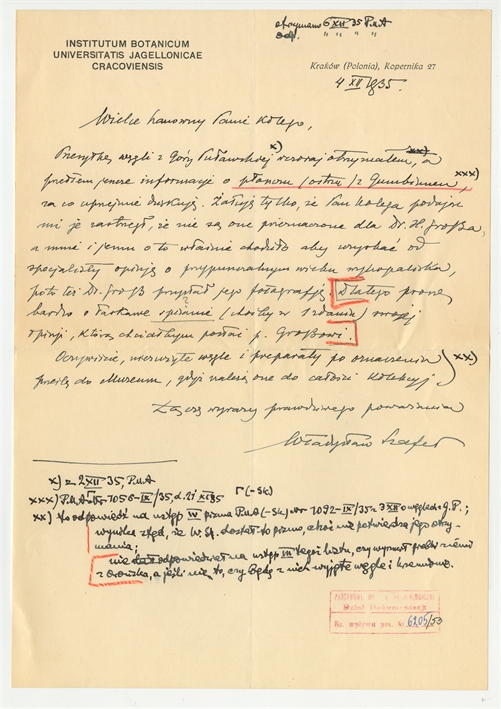 otrzymano 6 XII 35 P.u.A
odp. " " " "
INSTITUTUM BOTANICUM
UNIVERSITATIS JAGELLONICAE
CRACOVIENSIS
Kraków (Polonia), Kopernika 27
4 XII 1935.
Wielce Szanowny Panie Kolego,
x) xx)
Przesyłkę węgli z Góry Puławskiej wczoraj otrzymałem, a
przedtem jeszcze informacje o xxx)
za co uprzejmie dziękuję. Żałuję tylko, że Pan Kolega podaje
mi je zastrzegł, że nie są one przeznaczone dla Dr. H. Großa,
a mnie i jemu o to właśnie chodziło aby wydobyć od
specjalisty opinję o przypuszczalnym wieku wykopaliska,
Dr. Groß przysłał jego fotografję. Dlatego proszę
bardzo o łaskawe podanie (choćby w 1 zdaniu) swojej
opinji, którą chciałbym posłać p. Großowi.
Oczywiście, niezużyte węgle i preparaty po oznaczeniu xx)
prześlę do Muzeum, gdyż należą one do całości kolekcji
Łączę wyrazy prawdziwego poważania
Władysław Szafer
x) z 2 XII 35, P.u.A
xxx) P.u.A 1056-IX/35, d. 21 XI 35 (-sk)
xx) to odpowiedź na ustęp IV pisma P.u.A (-sk) nr 1092-IX/35 z 3 XII o węglach z G.P.;
wynika stąd, że W. Sz. dostał to pismo, choć nie potwierdza jego otrzy-
mania;
nie odpowiedział na ustęp III tegoż listu, czy wymył próbkę ziemi
z ogniska, a jeśli nie to, czy będą z nich wyjęte węgle i krzemienie.
Nr. wpływu 6205/53